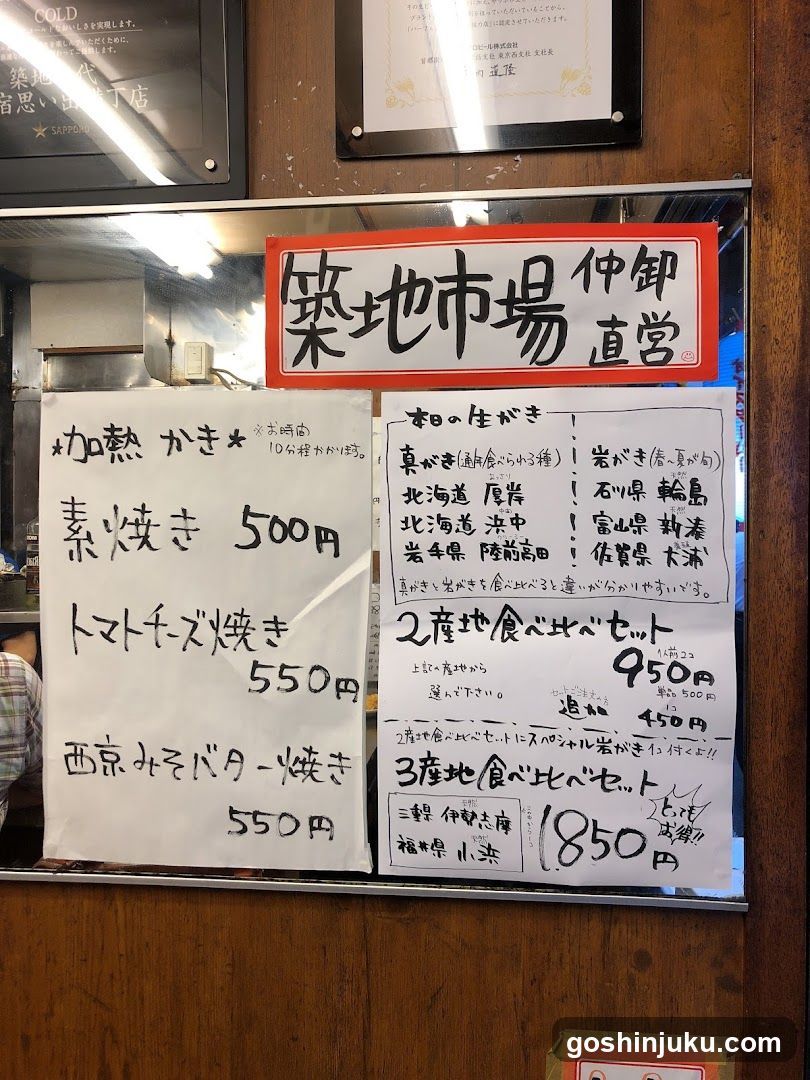 COLD
おいしさを実現します。
築地
宿思い出横丁店
★ SAPPORO
築地市場 仲卸直営
★加熱 かき★
※お時間10分程かかります。
素焼き 500円
トマトチーズ焼き
550円
西京みそバター焼き
550円
本日の生がき
真がき(通年食べられる種)
北海道 厚岸
北海道 浜中
岩手県 陸前高田
岩がき(春〜夏が旬)
石川県 輪島
富山県 新湊
佐賀県 大浦
真がきと岩がきを食べ比べると違いが分かりやすいです。
2産地食べ比べセット
1人前2コ
950円
上記の産地から
選んで下さい。
単品500円
セットご注文の方
追加 1コ 450円
2産地食べ比べセットにスペシャル岩がき1コ付くよ!!
3産地食べ比べセット
三重県 伊勢志摩
福井県 小浜
1850円
とってもお得!!
goshinjuku.com